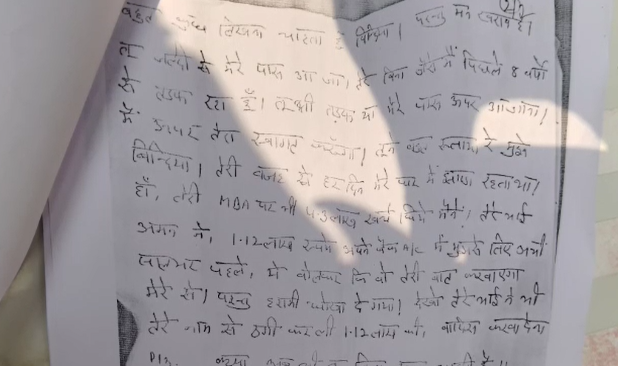 बहुत कुछ लिखना चाहता हूँ बिन्दिया। परन्तु मन खराब है।
तू जल्दी से मेरे पास आ जा। तेरे बिना मैं पिछले 8 वर्षों
से तड़फ रहा हूँ। तू भी तड़फ मेरे पास ऊपर आ
मैं ऊपर तेरा स्वागत करूँगा। तूने बहुत रुलाया रे मुझे
बिन्दिया। तेरी वजह से हर दिन मेरे घर में झगड़ा रहता था।
हाँ, तेरी MBA पर भी लाख खर्च किये मैंने। तेरे भाई
अमन ने, 1.12 लाख रुपये अपने बैंक A/c में मुझसे लिए अभी
सालभर पहले, ये बोलकर कि वो तेरी बात करवाएगा
मेरे से। परन्तु हरामी धोखा दे गया। देखो तेरे भाई ने भी
तेरे नाम से ठगी कर ली 1.12 लाख की, वापिस करवा देना